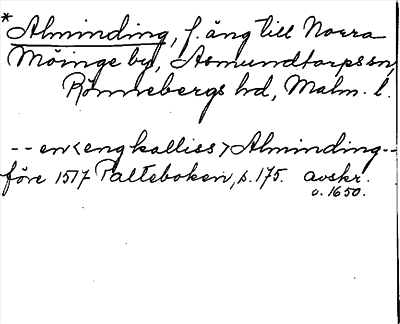 * Alminding, f. äng till Norra
Möinge by, Asmundtorps sn,
Rönnebergs hd, Malm. l.
-- en <eng kalliss> Alminding --
före 1517 Palteboken, s. 175. avskr.
o. 1650.